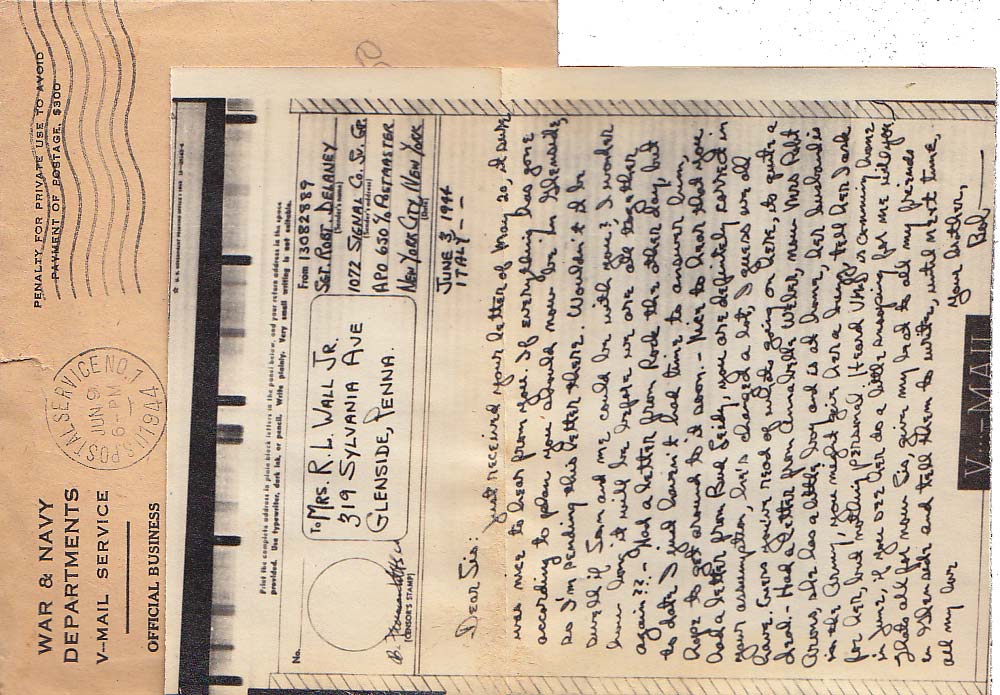 WAR & NAVY
DEPARTMENTS
V-MAIL SERVICE
OFFICIAL BUSINESS
U.S. POSTAL SERVICE NO. 1
JUN 9
6-PM
1944
PENALTY FOR PRIVATE USE TO AVOID
PAYMENT OF POSTAGE, $300
Print the complete address in plain block letters in the panel below, and your return address in the space
provided. Use typewriter, dark ink, or pencil. Write plainly. Very small writing is not suitable.
No.
(CENSOR'S STAMP)
To MRS. R. L. WALL JR.
319 SYLVANIA AVE
GLENSIDE, PENNA.
From 13082889
SGT. ROBT DELANEY
(Sender's name)
1072 SIGNAL CO. SV. GP.
(Sender's address)
APO 650 % POSTMASTER
NEW YORK CITY NEW YORK
(Date)
JUNE 3, 1944
ITALY - -
Dear Sis:
Just received your letter of May 20, it sure
was nice to hear from you. If everything has gone
according to plan you should now be in Glenside,
so I'm sending this letter there. Wouldn't it be
swell if Tom and me could be with you? I wonder
how long it will be before we are all together
again??. - Had a letter from Rod the other day, but
to date I just haven't had time to answer him,
hope to get around to it soon. - Nice to hear that you
had a letter from Bud Leidy, you are definitely correct in
your assumption, he's changed a lot, I guess we all
have. Guess you've read of what's going on here, so quite a
deal. - Had a letter from Annabelle Weber, now Mrs Robt
Arons, she has a little boy and is at home, her husband is
in the Army, you might give her a buzz, tell her I ask
for her, but nothing personal. Heard Virg is coming home
in June, if you see her do a little snooping for me will you
That's all for now Sis, give my best to all my friends
in Glenside and tell them to write, until next time,
all my love
Your brother,
Bob
V-MAIL